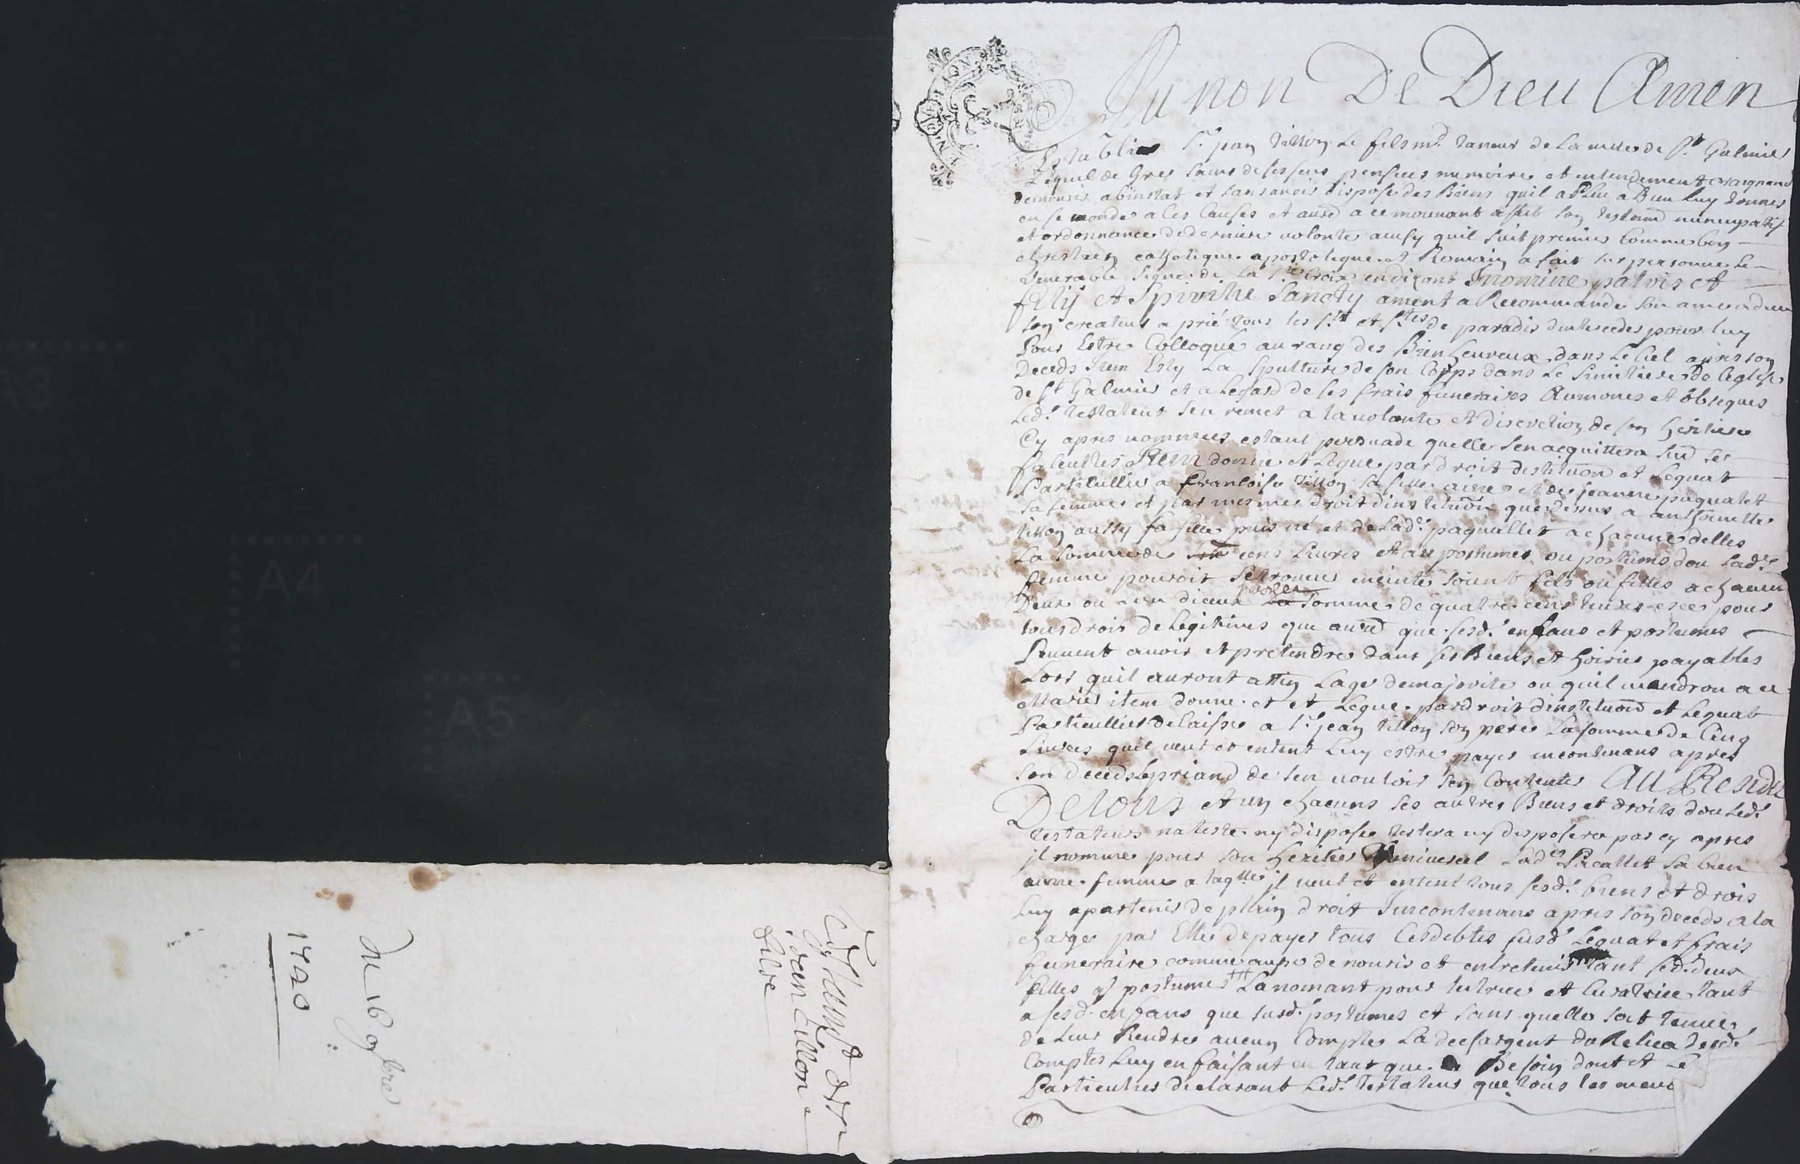 Au non De Dieu Amen
Estably Sr jean tillon le fils md taneur de la ville de St Galmier
lequel de gres sains de ses sens pensees memoire et entendement craignant
de mourir abinstat et sans avoir dispose des Biens quil a plu a Dieu luy donner
en se monde a ces causes et ausd a ce mouvant a fait son testamt nuncupatif
et ordonnance de derniere volonte ainsy quil suit premier comme bon
chrestien catholique apostolique et Romain a fait sur personne le
venerable signe de la Ste Croix en dizant Inomine patris et
filij et Spiritu Sancty ament a Recommande son ame a dieu
son createur a prié tous les Sts et Stes de paradis dinterceder pour luy
pour estre Colloque au rang des Bien heureux dans le Ciel apres son
Deceds Item Esly la spulture de son Corps dans le simetiere de leglise
de St Galmier et a legard de ses frais funeraires aumones et obseques
ledt testateur sen remet a la volonte et discretion de son heritiere
cy apres nommees estant persuade quelle sen acquittera sur ses
facultes Item donne et legue par droit distitution et legat
particullier a francoise tillon sa fille ainee et de jeanne paquallet
sa femme et par mesmes droit dinstitution que dessus a anthoinette
tillon aussy sa fille puis ne et de lade paquallet a chacune delles
la somme de cens livres et au postumes ou postumes dou lade
femme pouroit se trouver enceinte soient fils ou filles a chacun
deux ou diceux la somme de quatre cens livres pour
tous drois de legitimes que ausd que sesd enfans et postumes
peuvent avoir et pretendre dans ses Biens et hoiries payables
lors quil auront attin lage de majorite ou quil viendron a se
Marier item donne et et legue par droit dinstitution et legat
particullier delaisse a Sr jean tillon son pere la somme de Cinq
livres quil veut et entent luy estre paye incontinans apres
son deceds le priand de sen vouloir Contenter Au Residu
De tous et un chacuns ses autres Biens et droits dou ledt
testateur na teste ny dispose testera ny disposera par cy apres
il nomme pour son heritier Universel lade Pacallet sa bien
aimee femme a laqlle il veut et entent tous sesd biens et drois
luy apartenir de plain droit Incontenans apres son deceds a la
charge par Elle de payer tous ces debtes susd Legat et frais
funeraire comme aussy de nourir et entretenir tant sesd deux
filles et postumes la nomant pour tutrice et curatrice tant
a sesd enfans que susd postumes et sans quelle soit tenue
de leur Rendre aucun Comptes la dechargent du Relica desd
Comptes luy en faisant en tant que de Besoin dont et le
particulier declarant ledt testateur que tous les meu
Testament de Sr
jean tillon
du 16 9bre
1720